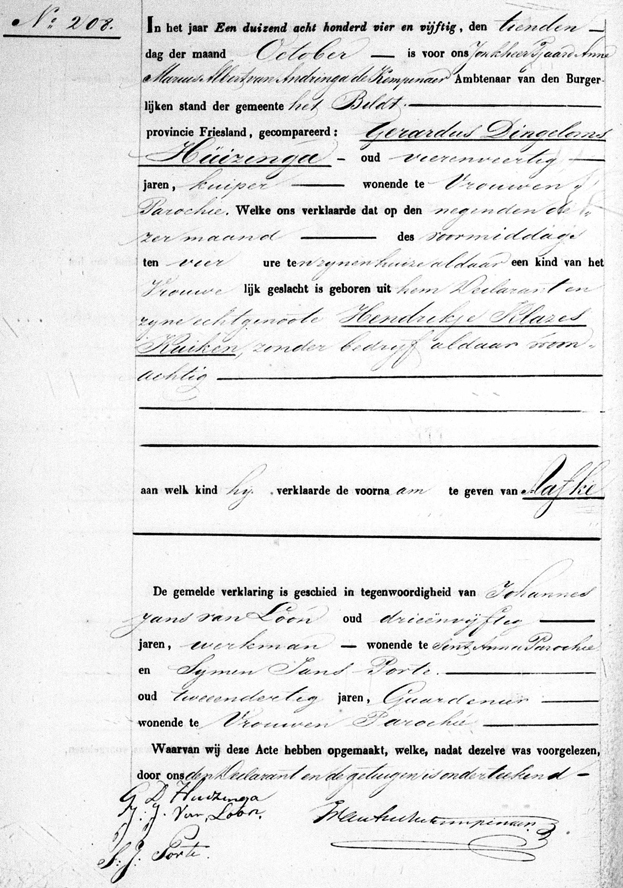 No. 208.
In het jaar Een duizend acht honderd vier en vijftig, den tienden
dag der maand October is voor ons Jonkheer Tjaard Anne
Marius Albert van Andringa de Kempenaer Ambtenaar van den Burger-
lijken stand der gemeente het Bildt.
provincie Friesland, gecompareerd: Gerardus Dingeloms
Huizenga oud vierenveertig
jaren, kuiper wonende te Vrouwen
Parochie. Welke ons verklaarde dat op den negenden de-
zer maand des voormiddags
ten vier ure ten zynen huize aldaar een kind van het
Vrouwe lijk geslacht is geboren uit hem Declarant en
zyne echtgenoote Hendrikje Klazes
Kuiken, zonder bedryf aldaar woon-
achtig
aan welk kind hy verklaarde de voorna am te geven van Aafke
De gemelde verklaring is geschied in tegenwoordigheid van Johannes
Jans van Loon oud drieënvyftig
jaren, werkman wonende te Sint Anna Parochie
en Symen Jans Porte.
oud tweeendertig jaren, Guardenier
wonende te Vrouwen Parochie
Waarvan wij deze Acte hebben opgemaakt, welke, nadat dezelve was voorgelezen,
door ons den Declarant en de getuigen is onderteekend
G D Huizenga
J. J. Van Loon.
S. J. Porte.